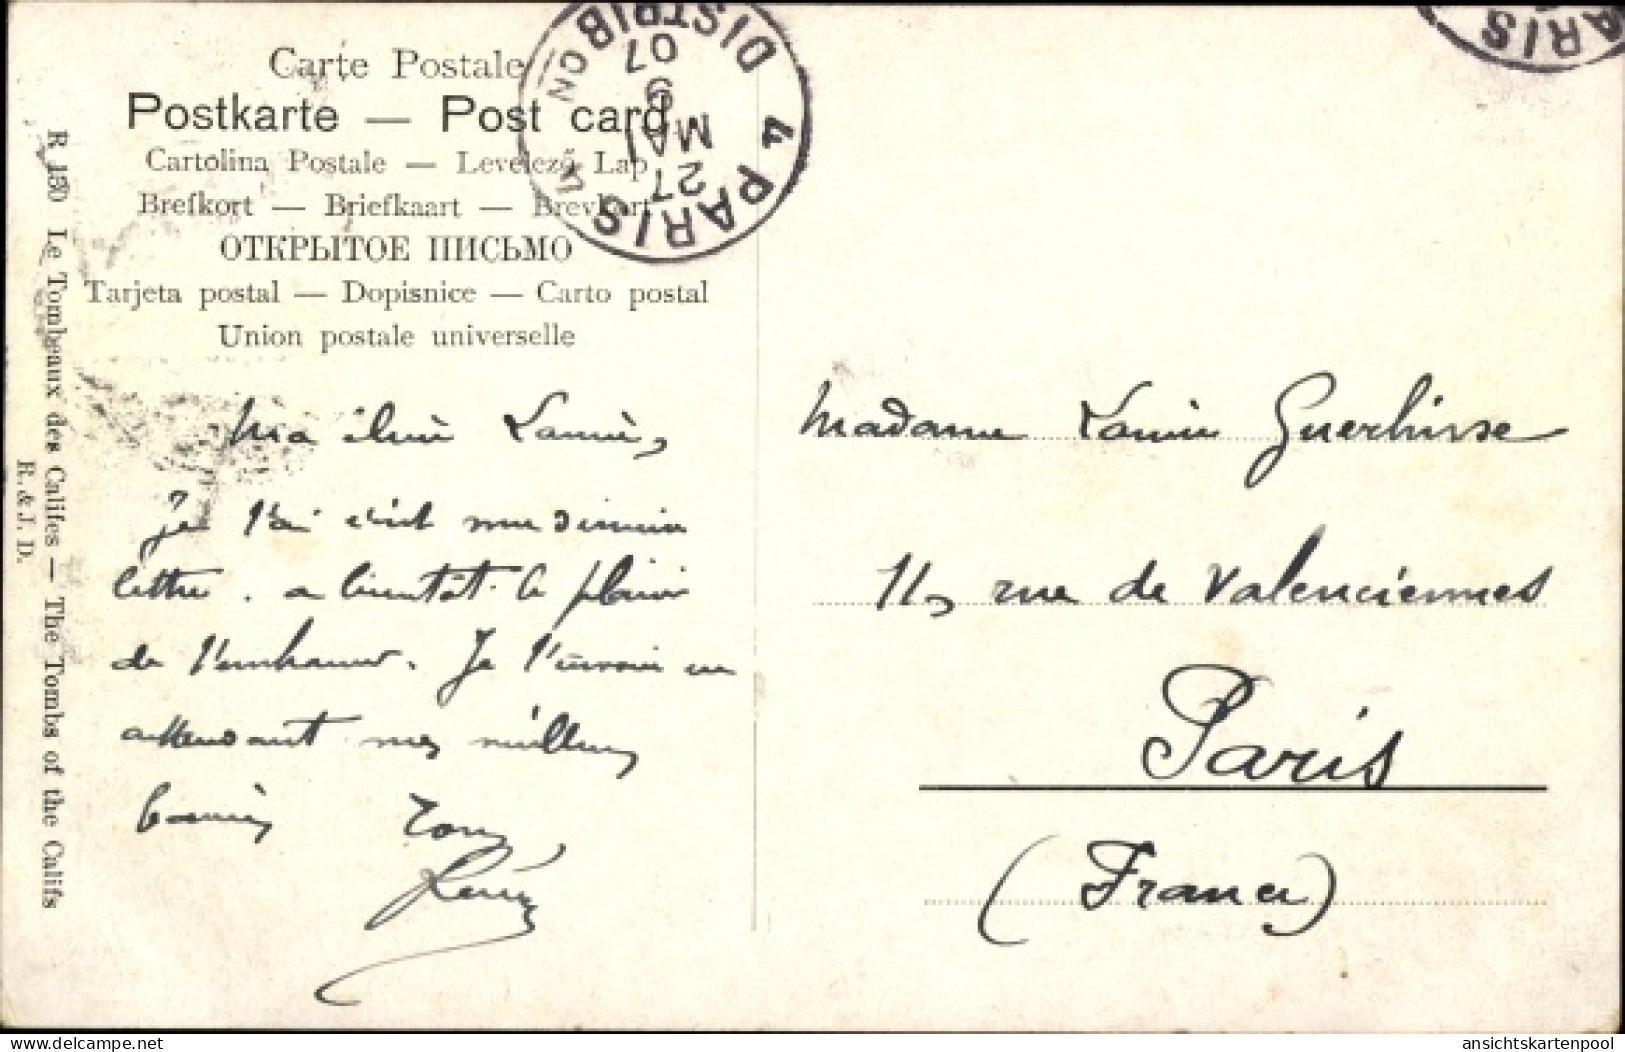 Carte Postale
Postkarte — Post card
Cartolina Postale — Levelező Lap
Brefkort — Briefkaart — Brevkort
ОТКРЫТОЕ ПИСЬМО
Tarjeta postal — Dopisnice — Carto postal
Union postale universelle
R 130 Le Tombeaux des Califes — The Tombs of the Califs
R. & J. D.
4 PARIS DISTRIBON
27
MAI
07
PARIS
Ma
je t'ai écrit une
lettre. a bientôt le plaisir
de Je t'envoie en
attendant mes meilleurs
baisers Ton
Madame Guerhisse
11, rue de Valenciennes
Paris
(France)
www.delcampe.net
ansichtskartenpool